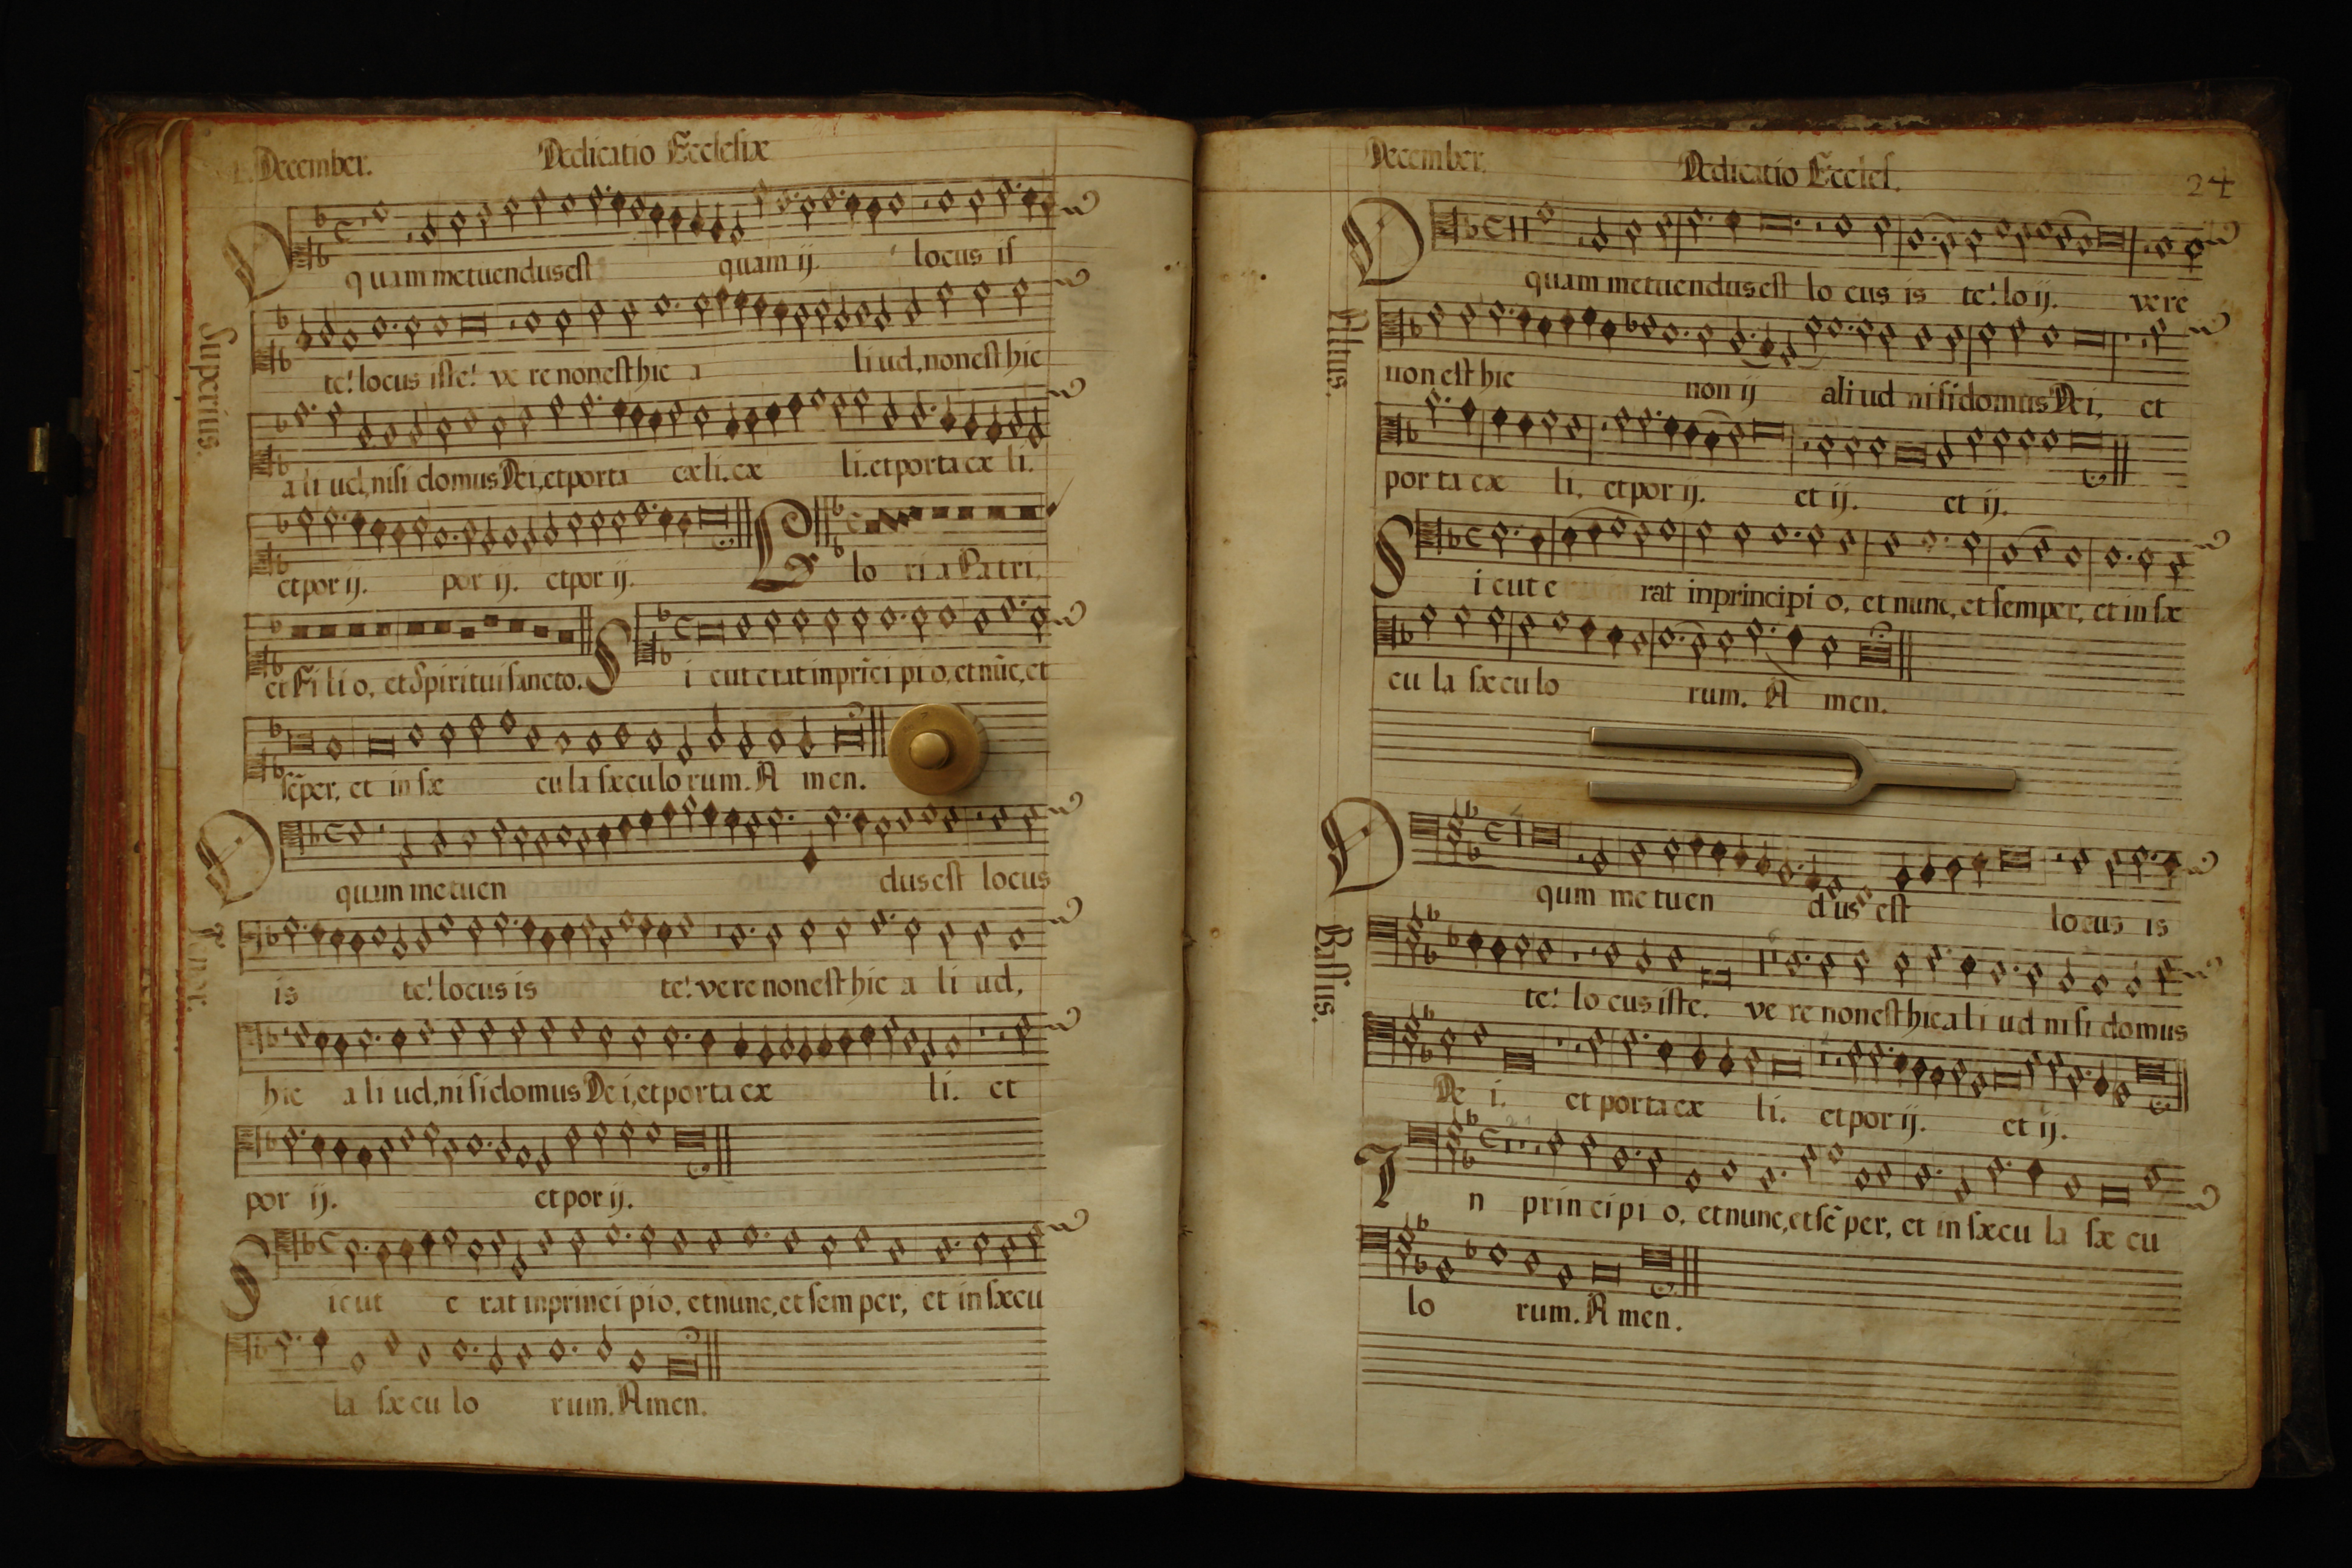 December. Dedicatio Ecclesiæ
O quam metuendus est quam ij. locus iſ
Superius.
te! locus iſte! ve re non eſt hic a li ud, non eſt hic
a li ud, niſi domus Dei, et porta cæ li. cæ li. et porta cæ li.
et por ij. por ij. et por ij. Glo ri a Pa tri,
et Fi li o, et Spiritui ſancto. S i cut erat in prĩci pi o, et nũc, et
ſẽper, et in ſæ cu la ſæculo rum. A men.
O quam me tuen dus eſt locus
Tenor.
is te! locus is te! vere non eſt hic a li ud,
hic a li ud, ni ſi domus De i, et porta cæ li. et
por ij. et por ij.
S icut e rat in princi pio, et nunc, et ſem per, et in ſæcu
la ſæ cu lo rum. Amen.
December. Dedicatio Eccleſ. 24
O quam metuendus eſt lo cus is te! lo ij. vere
Altus.
non eſt hic non ij aliud niſi domus Dei, et
por ta cæ li, et por ij. et ij. et ij.
S i cut e rat in principi o, et nunc, et ſemper, et in ſæ
cu la ſæ cu lo rum. A men.
O qum me tuen dus eſt locus is
Baſſus.
te! lo cus iſte. ve re non eſt hic a li ud ni ſi domus
De i. et porta cæ li. et por ij. et ij.
I n prin cipi o, et nunc, et ſẽ per, et in ſæcu la ſæ cu
lo rum. A men.